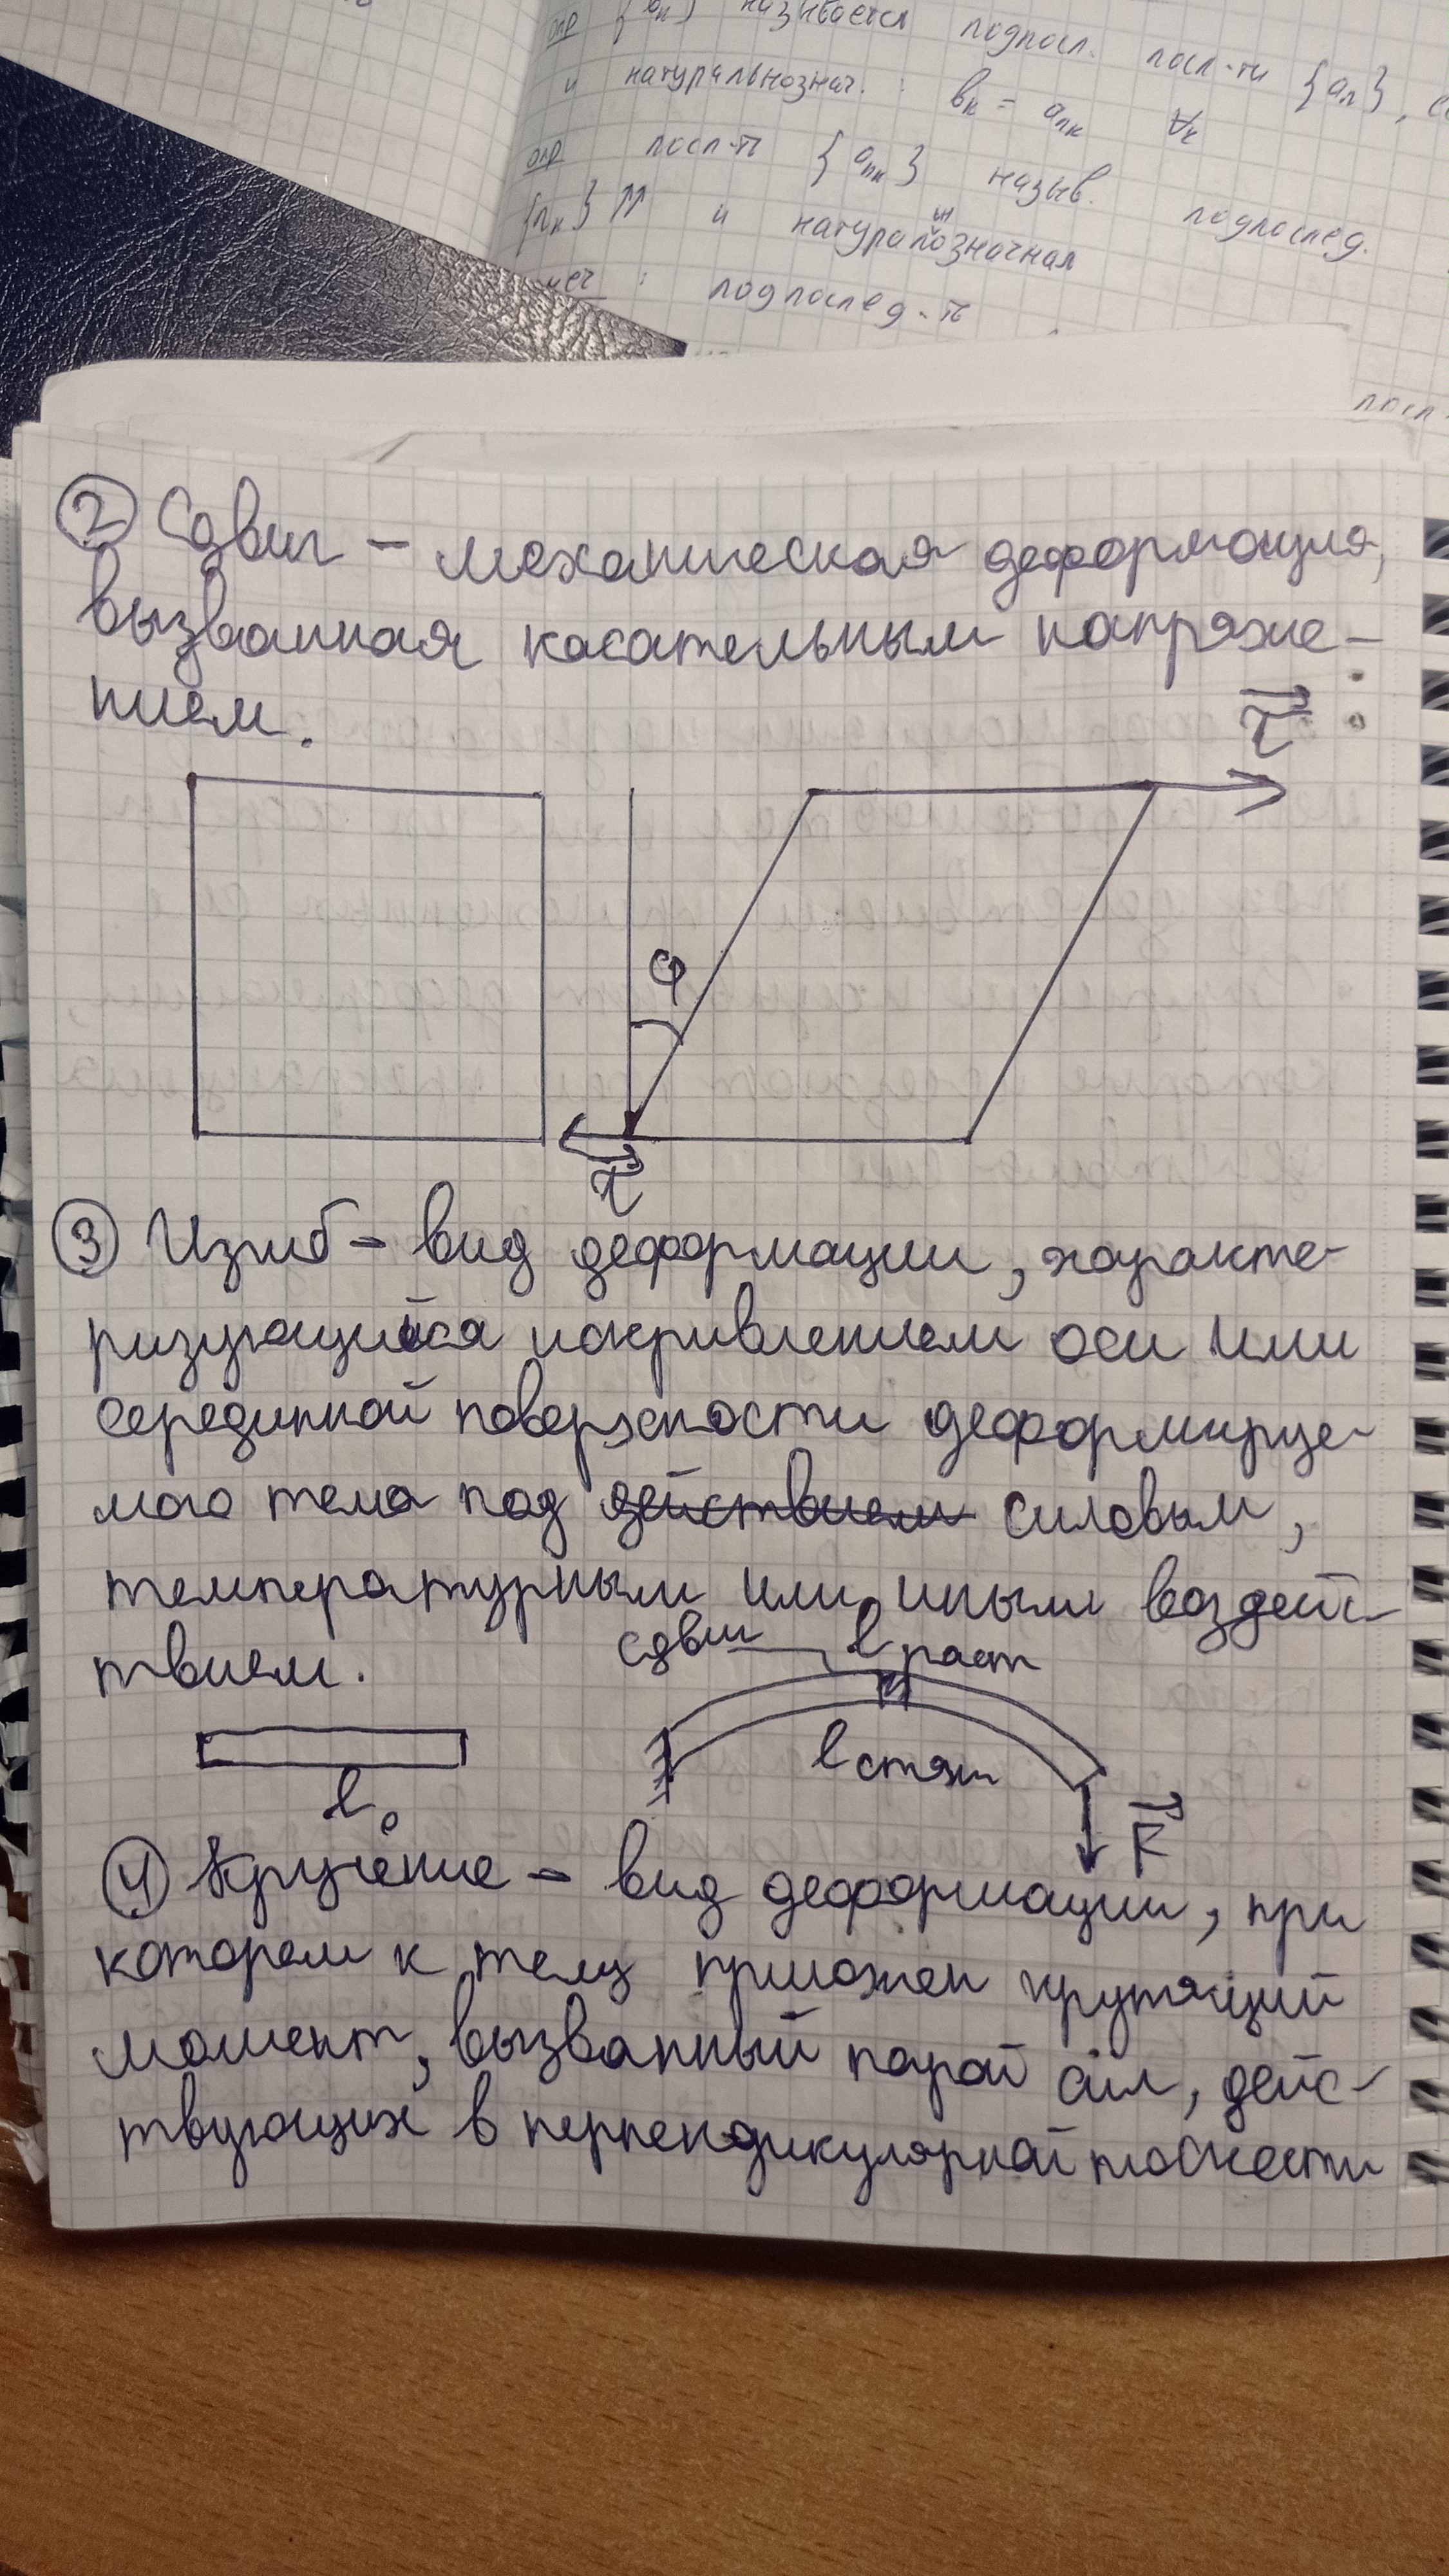 опр {bₙ} называется подпосл. посл-ти {aₙ},
и натуральнознач. : bₖ = aₙₖ ∀ₖ
опр посл-ть {aₙₖ} назыв. подпослед.
{nₖ} ⇈ и натуральнозначная
: подпослед-ть
посл-
② Сдвиг – механическая деформация,
вызванная касательным напряже-
нием.
τ
φ
τ
③ Изгиб – вид деформации, характе-
ризующийся искривлением оси или
серединной поверхности деформируе-
мого тела под действием силовым,
температурным или иным воздейс-
твием.
сдвиг
l раст
l стяж
l₀
F
④ Кручение – вид деформации, при
котором к телу приложен крутящий
момент, вызванный парой сил, дейс-
твующих в перпендикулярной плоскости